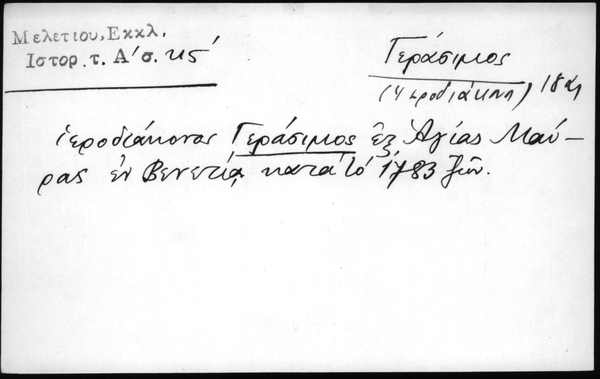 Μελετίου, Εκκλ.
Ιστορ. τ. Α′ σ. κς′
Γεράσιμος
(ιεροδιάκον) 18 αι
ἱεροδιάκονας Γεράσιμος ἐξ Ἁγίας Μαύ-
ρας ἐν Βενετίᾳ κατὰ τὸ 1783 ζῶν.